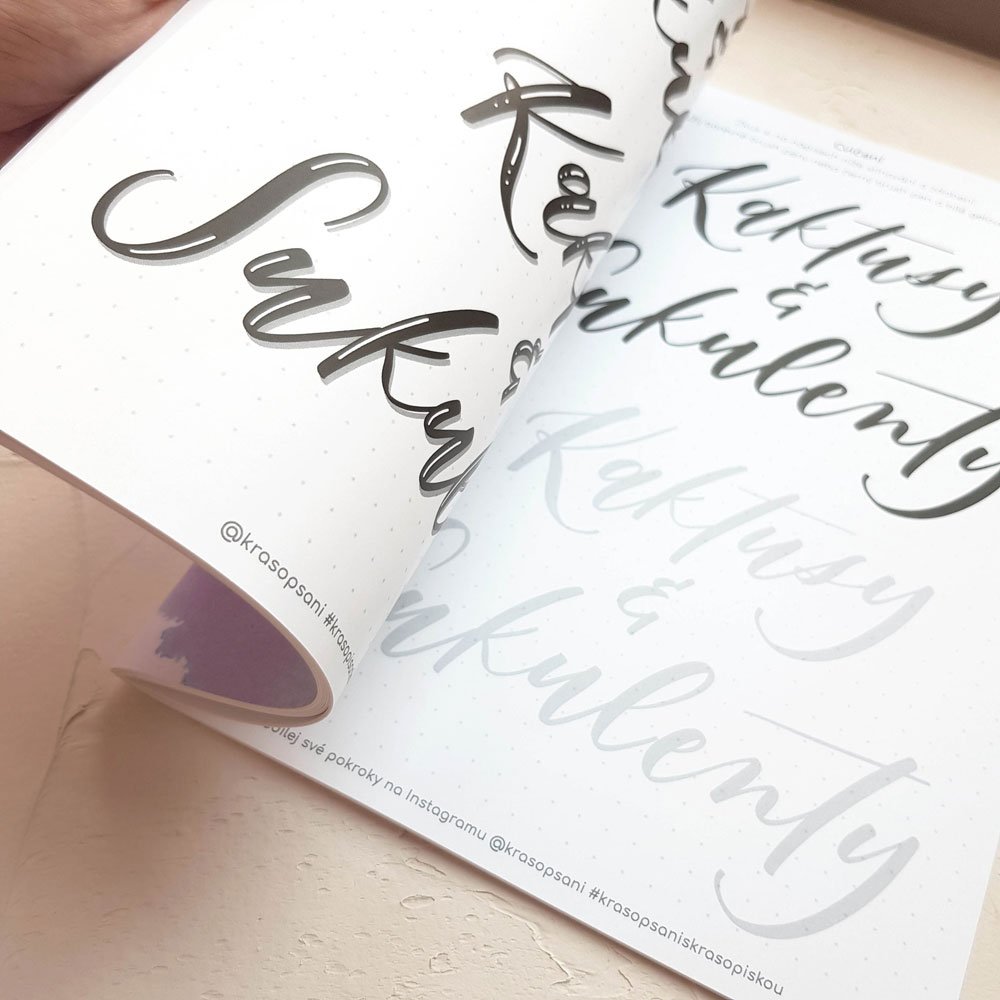 Kak
&
Suku
@krasopsani #krasopis
Cvičení
Kaktusy
&
Sukulenty
Kaktusy
&
Sukulenty
dílej své pokroky na Instagramu @krasopsani #krasopsaniskrasopiskou